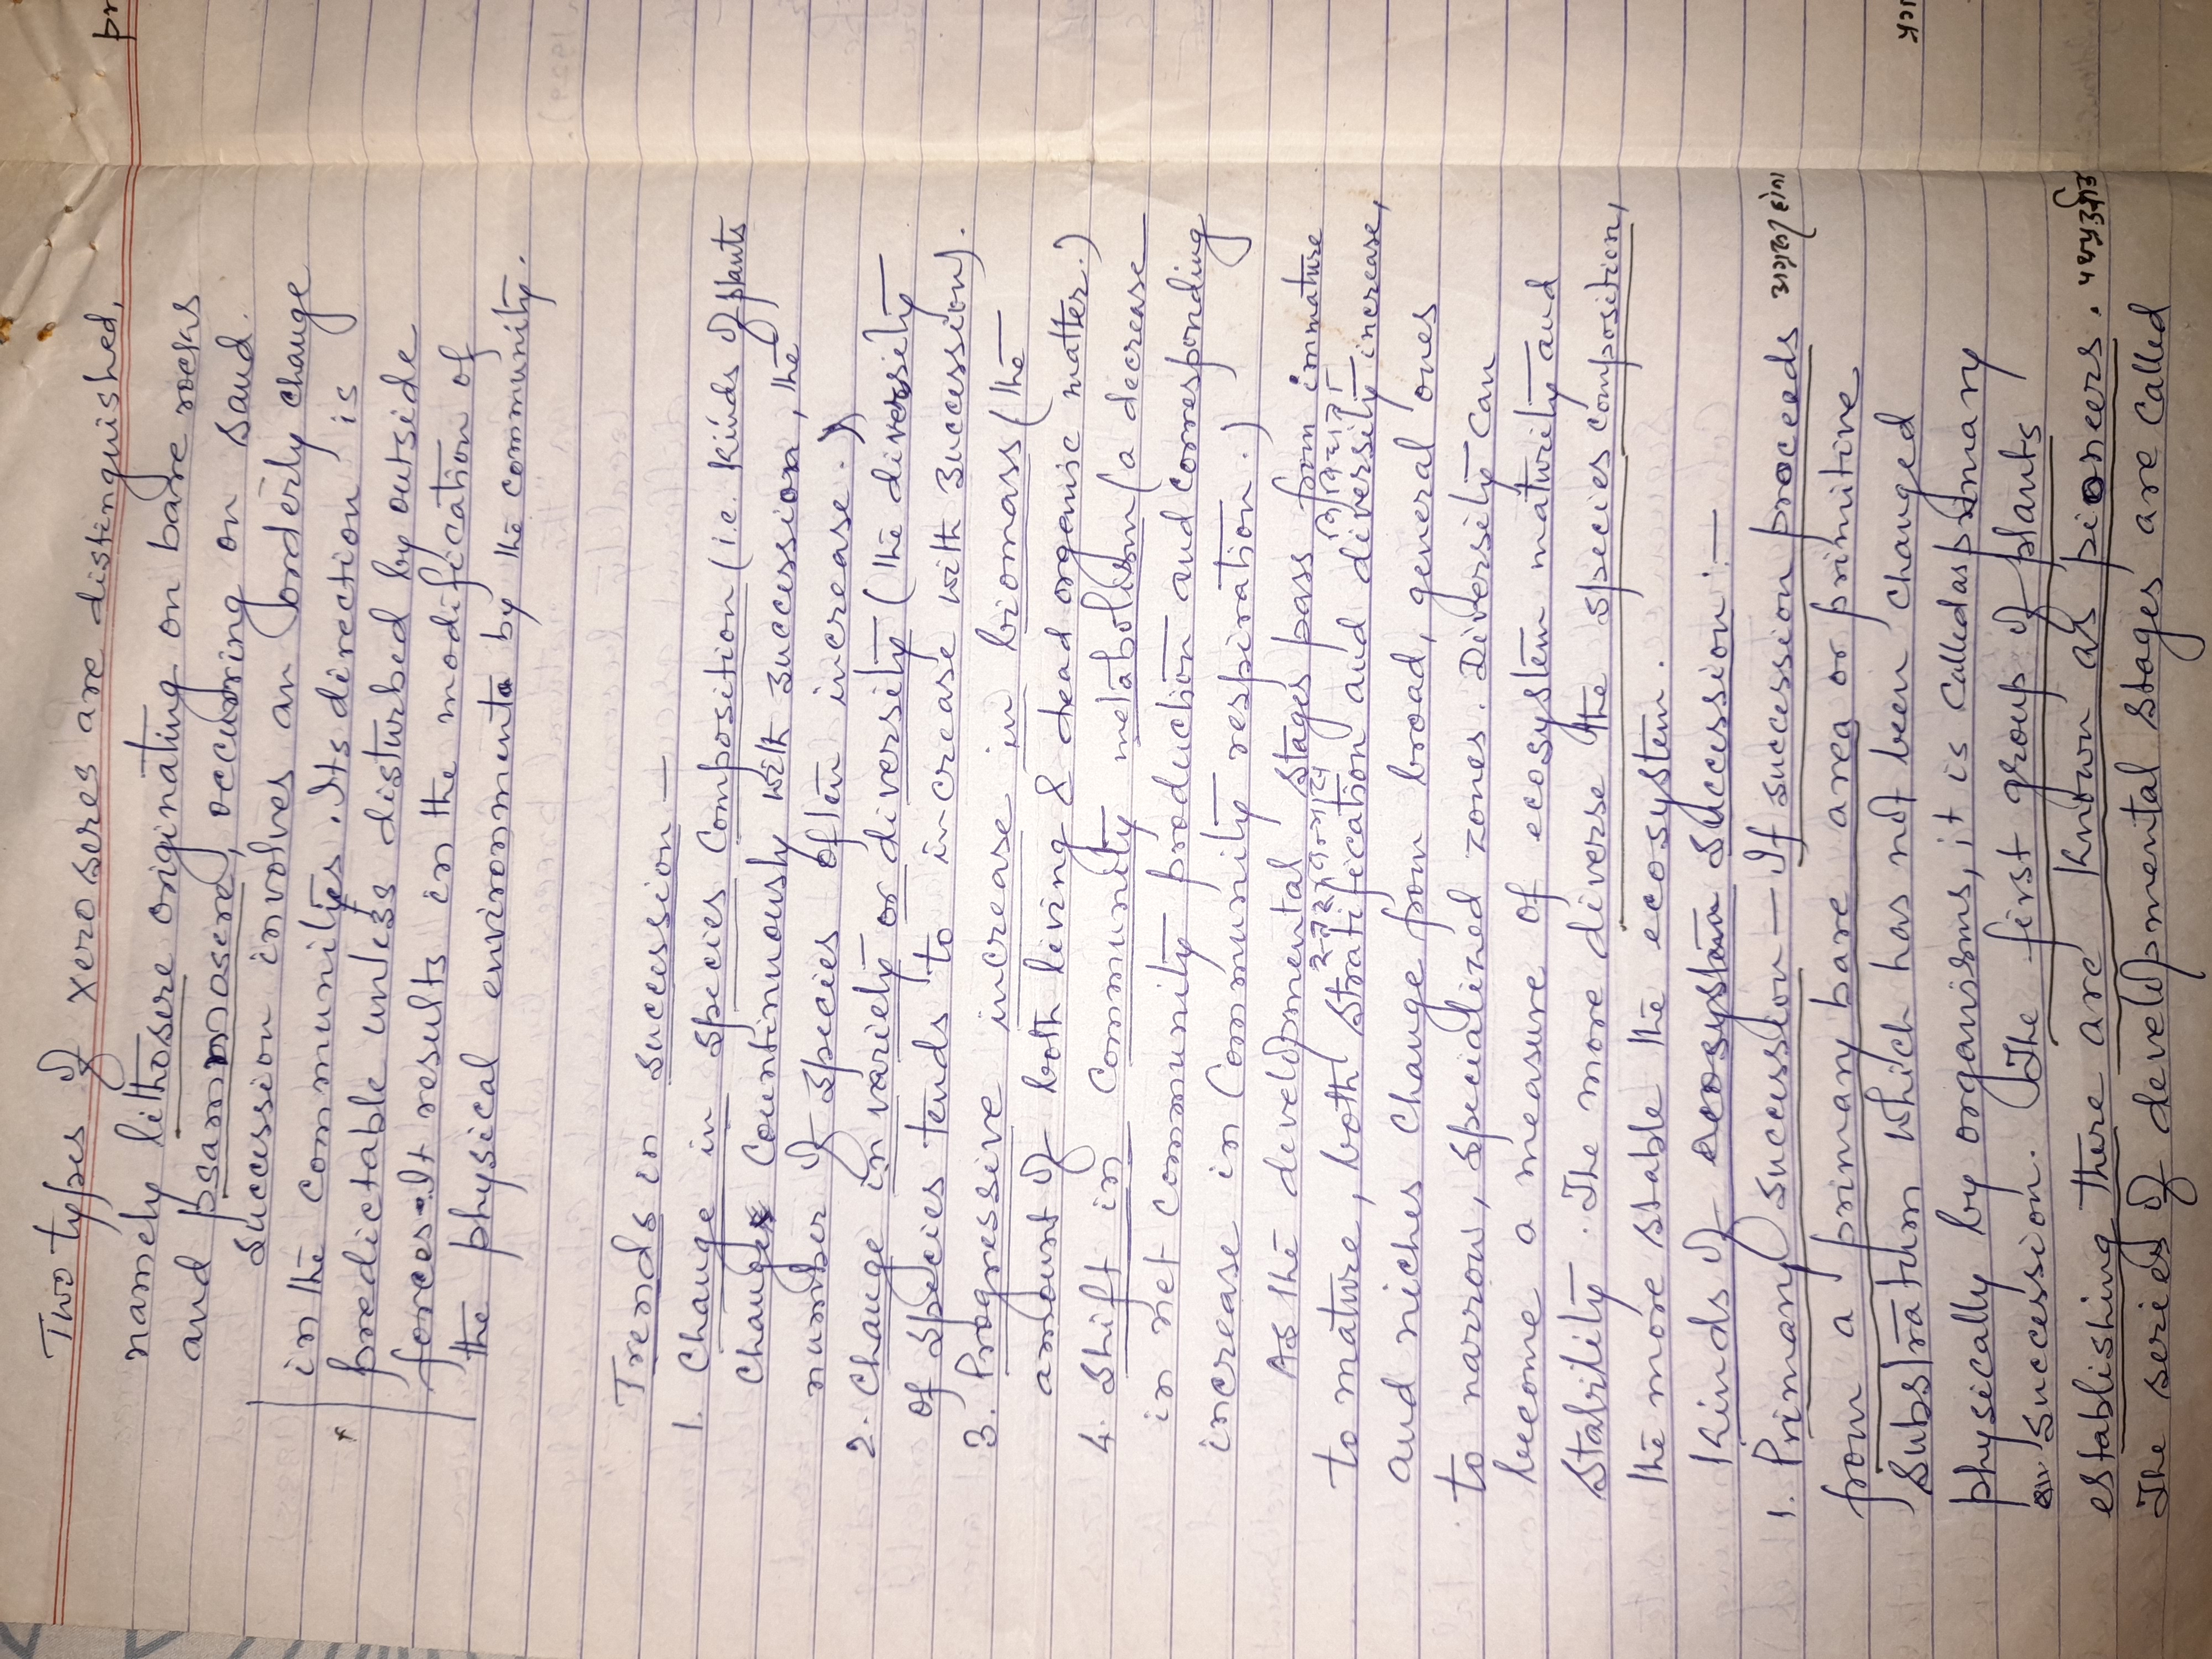 Two types of xeroseres are distinguished,
namely lithosere originating on bare rocks
and psammosere, occuring on sand.
Succession involves an orderly change
in the communities. Its direction is
predictable unless disturbed by outside
forces. It results in the modification of
the physical environment by the community.
Trends in succession —
1. Change in species composition (i.e. kinds of plants
changes countinuously with succession, the
number of species often increase.)
2. Change in variety or diversity (the diversity
of species tends to increase with succession).
3. Progressive increase in biomass (the
amount of both living & dead organic matter.)
4. Shift in community metabolism (a decrease
in net community production and corresponding
increase in community respiration.)
As the developmental stages pass from immature
to mature, both stratification and diversity increase,
and niches change from broad, general ones
to narrow, specialized zones. Diversity can
become a measure of ecosystem maturity and
stability. The more diverse the species composition,
the more stable the ecosystem.
Kinds of ecosystem succession :—
1. Primary succession — If succession proceeds
from a primary bare area or primitive
substratum which has not been changed
physically by organisms, it is called as primary
succession. The first group of plants
establishing there are known as pioneers.
The series of developmental stages are called